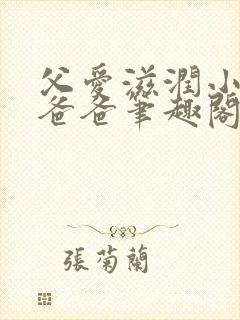 父愛滋潤小
爸爸筆趣閣
張菊蘭